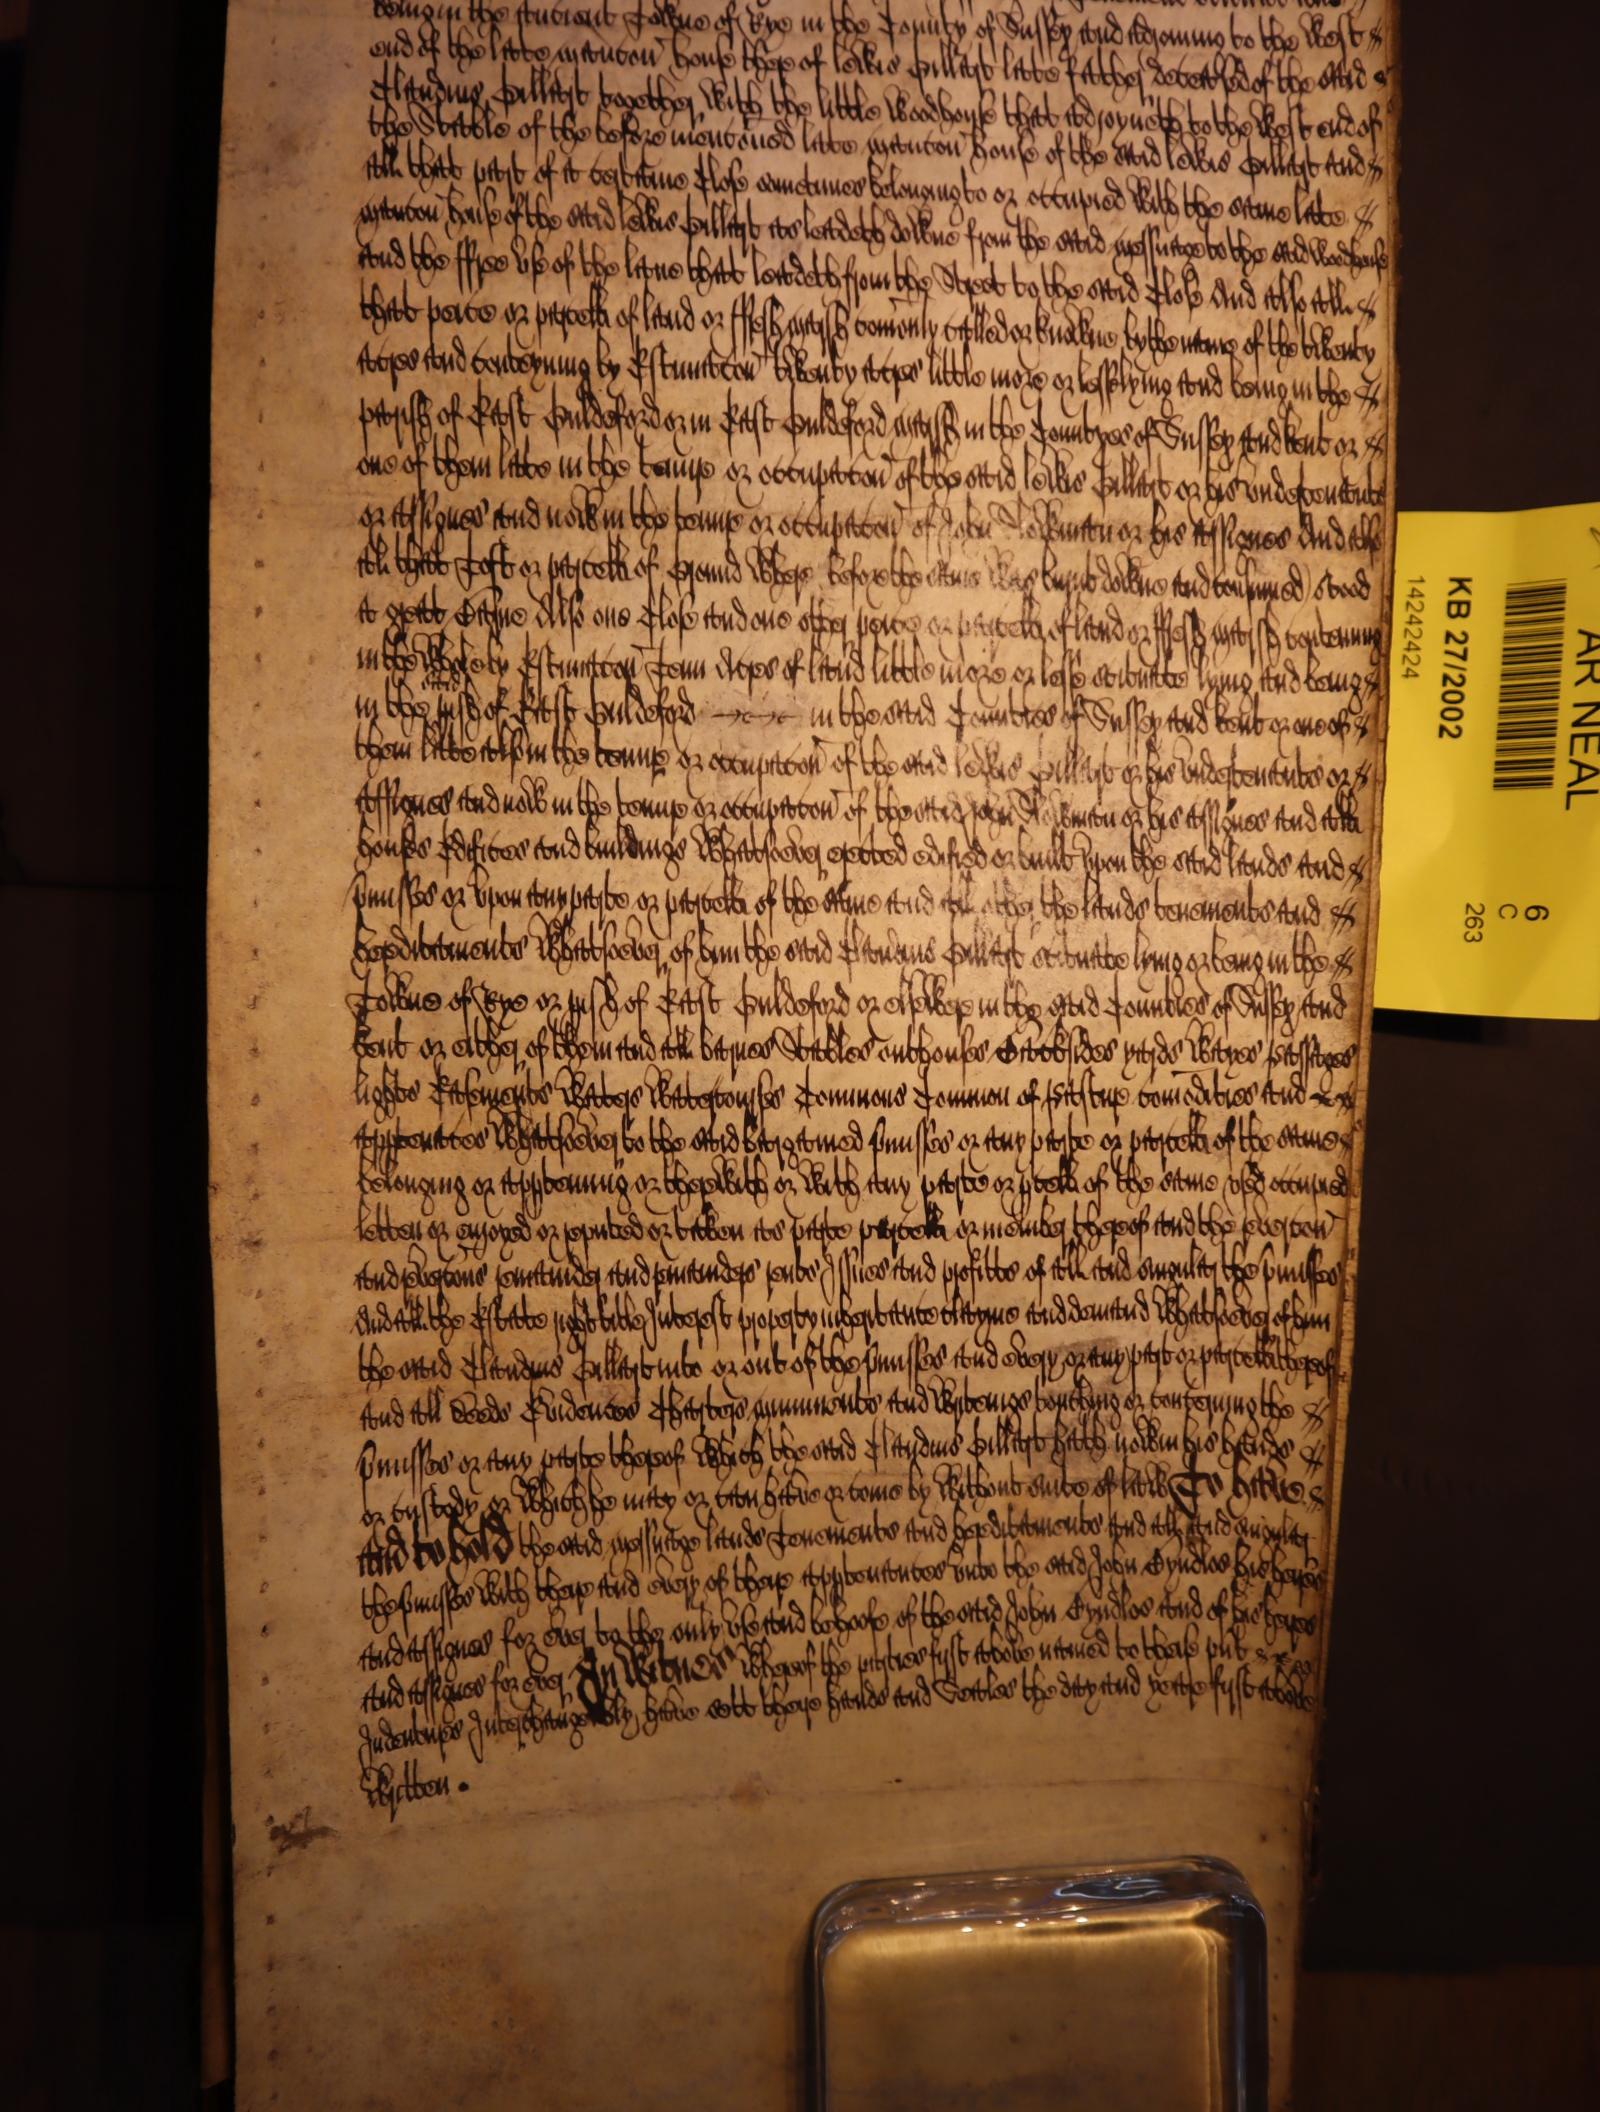 being in the Auncient Towne of Rye in the County of Sussex and adjoyning to the West
end of the late mancon house there of Lewis Gillart late father deceased of the said
Claudius Gillart together with the little Woodhouse that adjoyneth to the West end of
the Stable of the before mencioned late mancon house of the said Lewis Gillart And
all that part of a certaine Close sometimes belonging to or occupied with the same late
mancon house of the said Lewis Gillart as leadeth downe from the said messuage to the said Woodhouse
And the ffree use of the lane that leadeth from the Street to the said Close And also all
that peice or parcell of land or ffresh marsh comonly called or knowne by the name of the twenty
acres and conteyning by Estimacon twenty acres little more or lesse lying and being in the
parish of East Guldeford or in East Guldeford marsh in the Countyes of Sussex and Kent or
one of them late in the tenure or occupacon of the said Lewis Gillart or his undertenants
or assignes and now in the tenure or occupacon of John or his assignes And also
all that Toft or parcell of Ground Where before the same was burnt downe and consumed) stood
a Also one Close and one other peice or parcell of land or ffresh marsh conteining
in the Whole by Estimacon Tenn Acres of land little more or lesse scituate lying and being
in the said parish of East Guldeford in the said Counties of Sussex and Kent or one of
them late also in the tenure or occupacon of the said Lewis Gillart or his undertenants or
assignes and now in the tenure or occupacon of the said John or his assignes and all
houses Edifices and buildings Whatsoever erected edified or built upon the said lands and
premisses or upon any parte or parcell of the same and all other the lands tenements and
hereditaments Whatsoever of him the said Claudius Gillart scituate lying or being in the
Towne of Rye or parish of East Guldeford or elsewhere in the said Counties of Sussex and
Kent or either of them and all barnes Stables outhouses yards Wayes passages
lights Easements Waters Watercourses Commons Common of Pasture comodities and
appurtenances Whatsoever to the said bargained premisses or any parte or parcell of the same
belonging or apperteining or therewith or With any parte or parcell of the same used occupied
letten or enjoyed or reputed or taken as parte parcell or member thereof and the revercon
and revercons remainder and remainders rents Issues and profitts of all and singular the premisses
And all the Estate right title Interest property inheritance clayme and demand Whatsoever of him
the said Claudius Gillart into or out of the premisses and every or any part or parcell thereof
and all Deeds Evidences Charters muniments and Writeings touching or concerning the
premisses or any parte thereof Which the said Claudius Gillart hath now in his hands
or custody or Which he may or can have or come by Without suite of law To have
and to hold the said messuage lands Tenements and hereditaments and all and singular
the premisses With their and every of their appurtenances unto the said John Gyndlos his heires
and assignes for ever to the only use and behoofe of the said John Gyndlos and of his heires
and assignes for ever In Witnes Whereof the parties first above named to these present
Indentures Interchangeably have sett there hands and Seales the day and yeare first above
Written .
AR NEAL
KB 27/2002
14242424
6
C
263